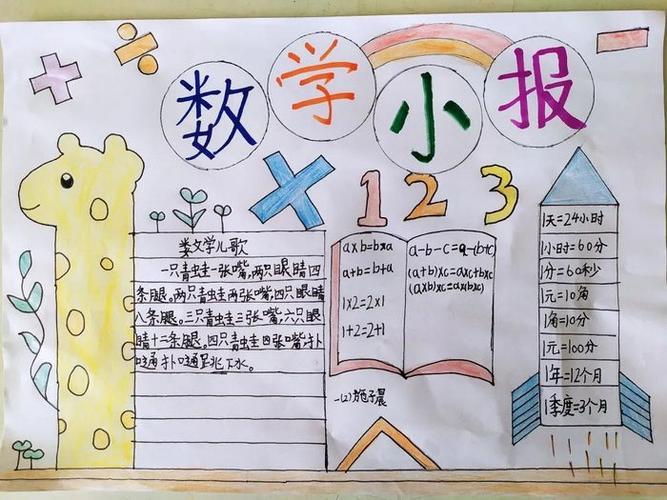 数学小报
1 2 3
数学儿歌
一只青蛙一张嘴,两只眼睛四
条腿。两只青蛙两张嘴,四只眼睛
八条腿。三只青蛙三张嘴,六只眼
睛十二条腿。四只青蛙四张嘴,扑
嗵扑嗵跳下水。
a×b=b×a
a+b=b+a
1×2=2×1
1+2=2+1
a-b-c=a-(b+c)
(a+b)×c=a×c+b×c
(a×b)×c=a×(b×c)
一(2)施子晨
1天=24小时
1小时=60分
1分=60秒
1元=10角
1角=10分
1元=100分
1年=12个月
1季度=3个月